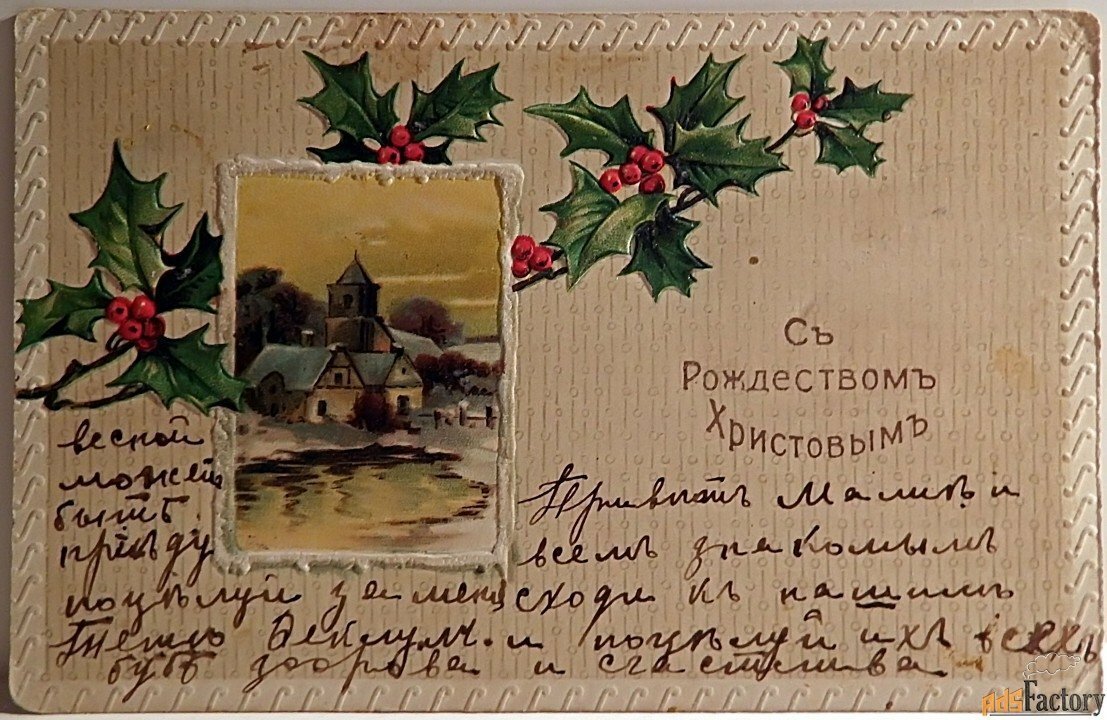 Съ
Рождествомъ
Христовымъ
весной
можетъ
быть
приѣду
Привѣтъ Маликъ и
всемъ знакомымъ
поцѣлуй за меня сходи къ нашимъ
и поцѣлуй ихъ всехъ
будь здорова и счастлива
AdsFactory